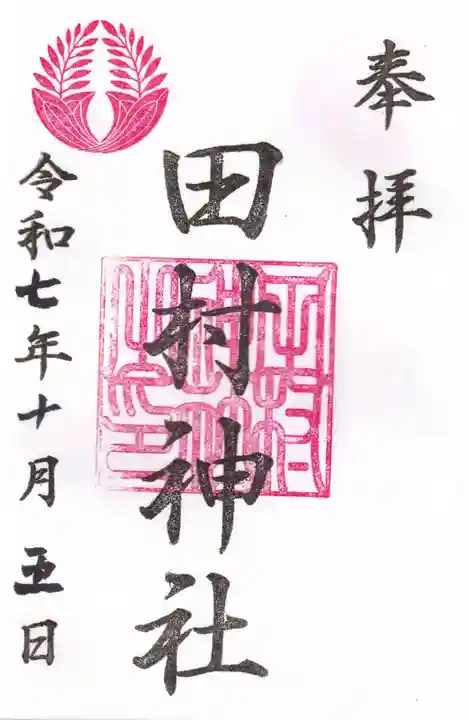 奉拝
田村神社
令和七年十月五日